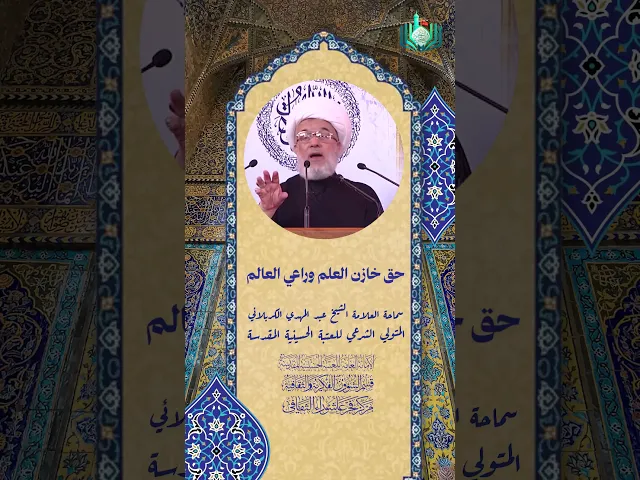 حق خازن العلم وراعي العالم
سماحة العلامة الشيخ عبد المهدي الكربلائي
المتولي الشرعي للعتبة الحسينية المقدسة
الأمانة العامة للعتبة الحسينية المقدسة
قسم الشؤون الفكرية والثقافية